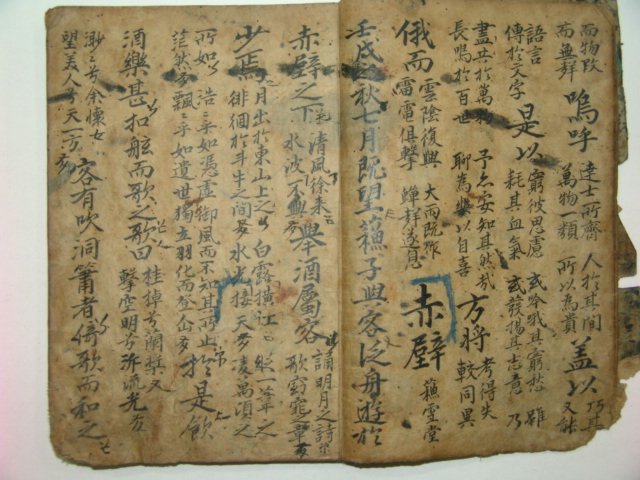 而物改
而無鮮
嗚呼
達士所齊
萬物一類
人於其間
所以為貴
盖以
巧其
又能
語言
傳於文字
是以
窮彼思慮
耗其血氣
或吟哦其窮愁
或發揚其志意
雖
乃
盡共於萬物
長鳴於百世
予亦安知其然哉
聊為樂以自喜
方將
考得失
較同異
俄而
雲陰復興
雷電俱擊
大雨既作
蟬聲遂息
赤壁
蘓雪堂
壬戌之秋七月既望蘓子與客泛舟遊於
赤壁之下
清風徐来
水波不興
擧酒屬客
誦明月之詩
歌窈窕之章
少焉
月出於東山上之
徘徊於斗牛之間
白露橫江
水光接天
縱一葦之
凌萬頃之
所如
茫然
浩乎如憑虛御風而不知其所止
飄乎如遺世獨立羽化而登仙
於是飮
酒樂甚扣舷而歌之歌曰
桂棹兮蘭槳
擊空明兮泝流光
渺兮余懷
望美人兮天一方
客有吹洞簫者倚歌而和之